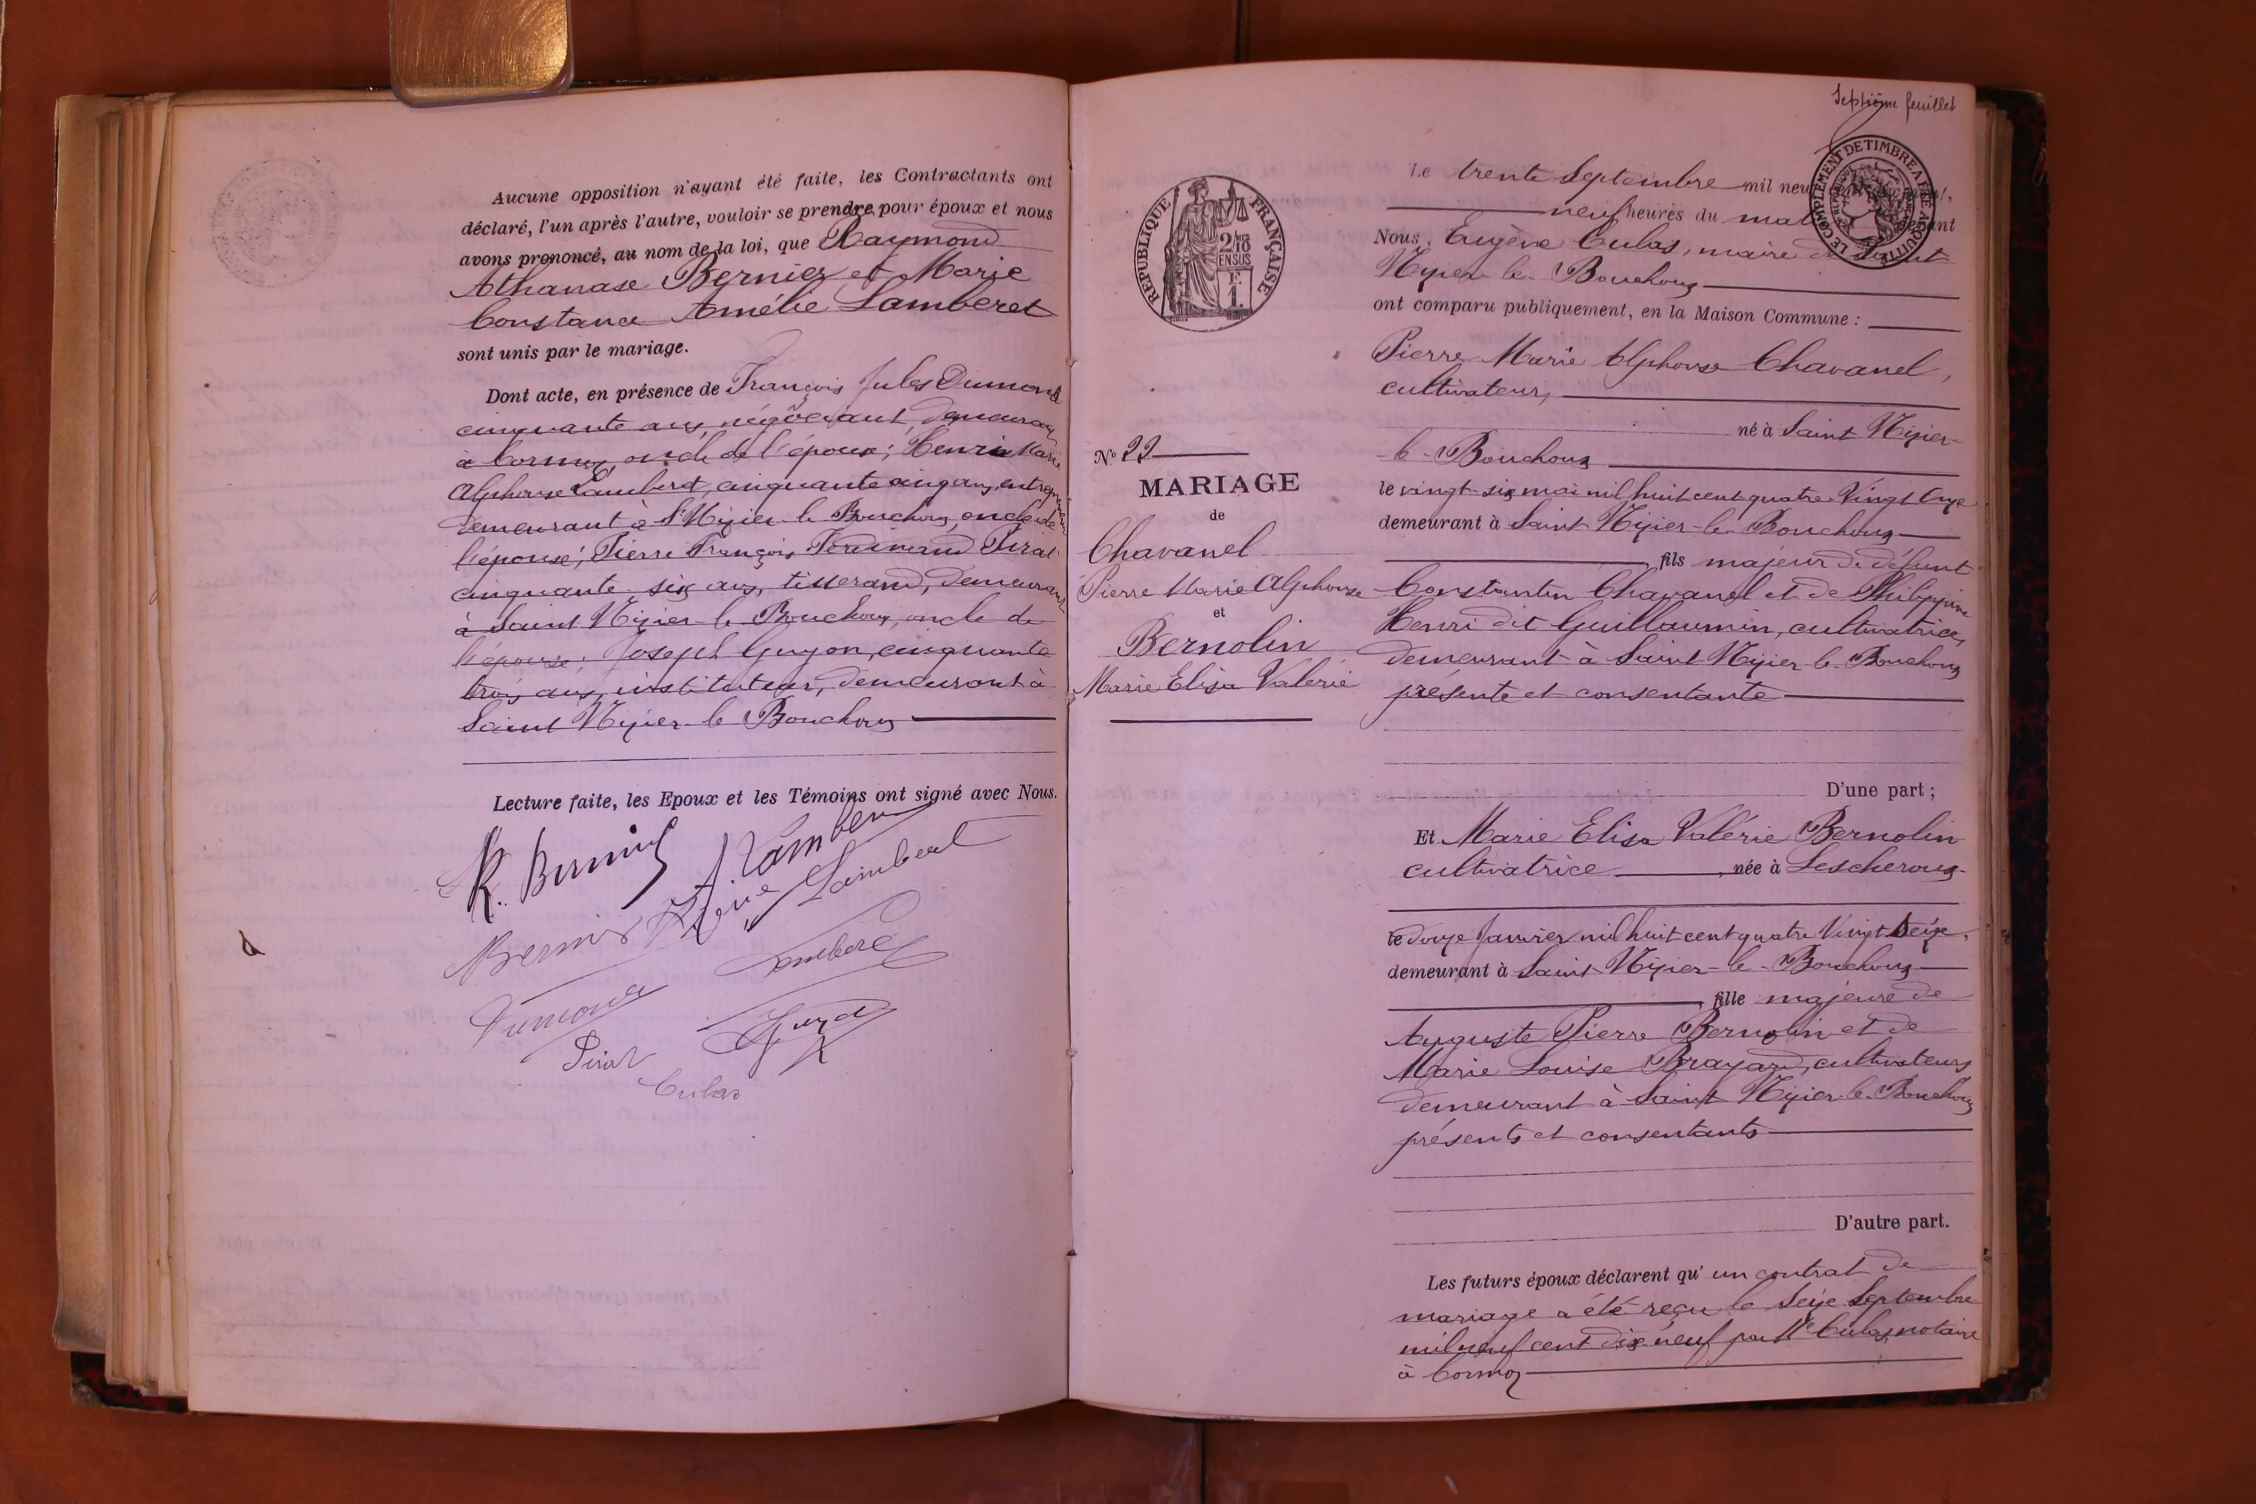 Aucune opposition n'ayant été faite, les Contractants ont
déclaré, l'un après l'autre, vouloir se prendre pour époux et nous
avons prononcé, au nom de la loi, que Raymond
Athanase Bernier et Marie
Constance Amélie Lamberet
sont unis par le mariage.
Dont acte, en présence de François Jules Dumont
cinquante ans, négociant, demeurant
à Cormoz, oncle de l'époux; Henri Marie
Alphonse Lamberet, cinquante cinq ans, entrepreneur
demeurant à St Nizier le Bouchoux, oncle de
l'épouse; Pierre François Ferdinand Pirat
cinquante six ans, tisserand, demeurant
à Saint Nizier le Bouchoux, oncle de
l'épouse; Joseph Guyon, cinquante
trois ans, instituteur, demeurant à
Saint Nizier le Bouchoux
Lecture faite, les Epoux et les Témoins ont signé avec Nous.
R. Bernier
Bernier
Lamberet
Dumont
Pirat
Culas
Septième feuillet
RÉPUBLIQUE FRANÇAISE
2/10 EN SUS
F. 1.
LE COMPLÉMENT DE TIMBRE A ÉTÉ ACQUITTÉ
Le trente Septembre mil neuf
neuf heures du
Nous, Eugène Culas, maire de Saint
Nizier le Bouchoux
ont comparu publiquement, en la Maison Commune :
Pierre Marie Alphonse Chavanel,
cultivateur,
né à Saint Nizier-
le-Bouchoux
le vingt-six mai mil huit cent quatre Vingt Onze
demeurant à Saint Nizier-le-Bouchoux
fils majeur de défunt
Constantin Chavanel et de Philippine
Henri dit Guillaumin, cultivatrice,
demeurant à Saint Nizier le Bouchoux
présente et consentante
D'une part ;
No 22
MARIAGE
de
Chavanel
Pierre Marie Alphonse
et
Bernolin
Marie Elisa Valérie
Et Marie Elisa Valérie Bernolin
cultivatrice, née à Lescheroux
le douze Janvier mil huit cent quatre Vingt Seize,
demeurant à Saint Nizier-le-Bouchoux
, fille majeure de
Auguste Pierre Bernolin et de
Marie Louise Brayard, cultivateurs
demeurant à Saint Nizier-le-Bouchoux
présents et consentants
D'autre part.
Les futurs époux déclarent qu'un contrat de
mariage a été reçu le Seize Septembre
mil neuf cent dix neuf par Me Culas, notaire
à Cormoz